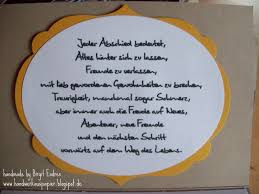 Jeder Abschied bedeutet,
Altes hinter sich zu lassen,
Freunde zu verlassen,
mit lieb gewordenen Gewohnheiten zu brechen,
Traurigkeit, manchmal sogar Schmerz,
aber immer auch die Freude auf Neues,
Abenteuer, neue Freunde
und den nächsten Schritt
vorwärts auf dem Weg des Lebens.
handmade by Birgit Endres
www.handwerkauspapier.blogspot.de